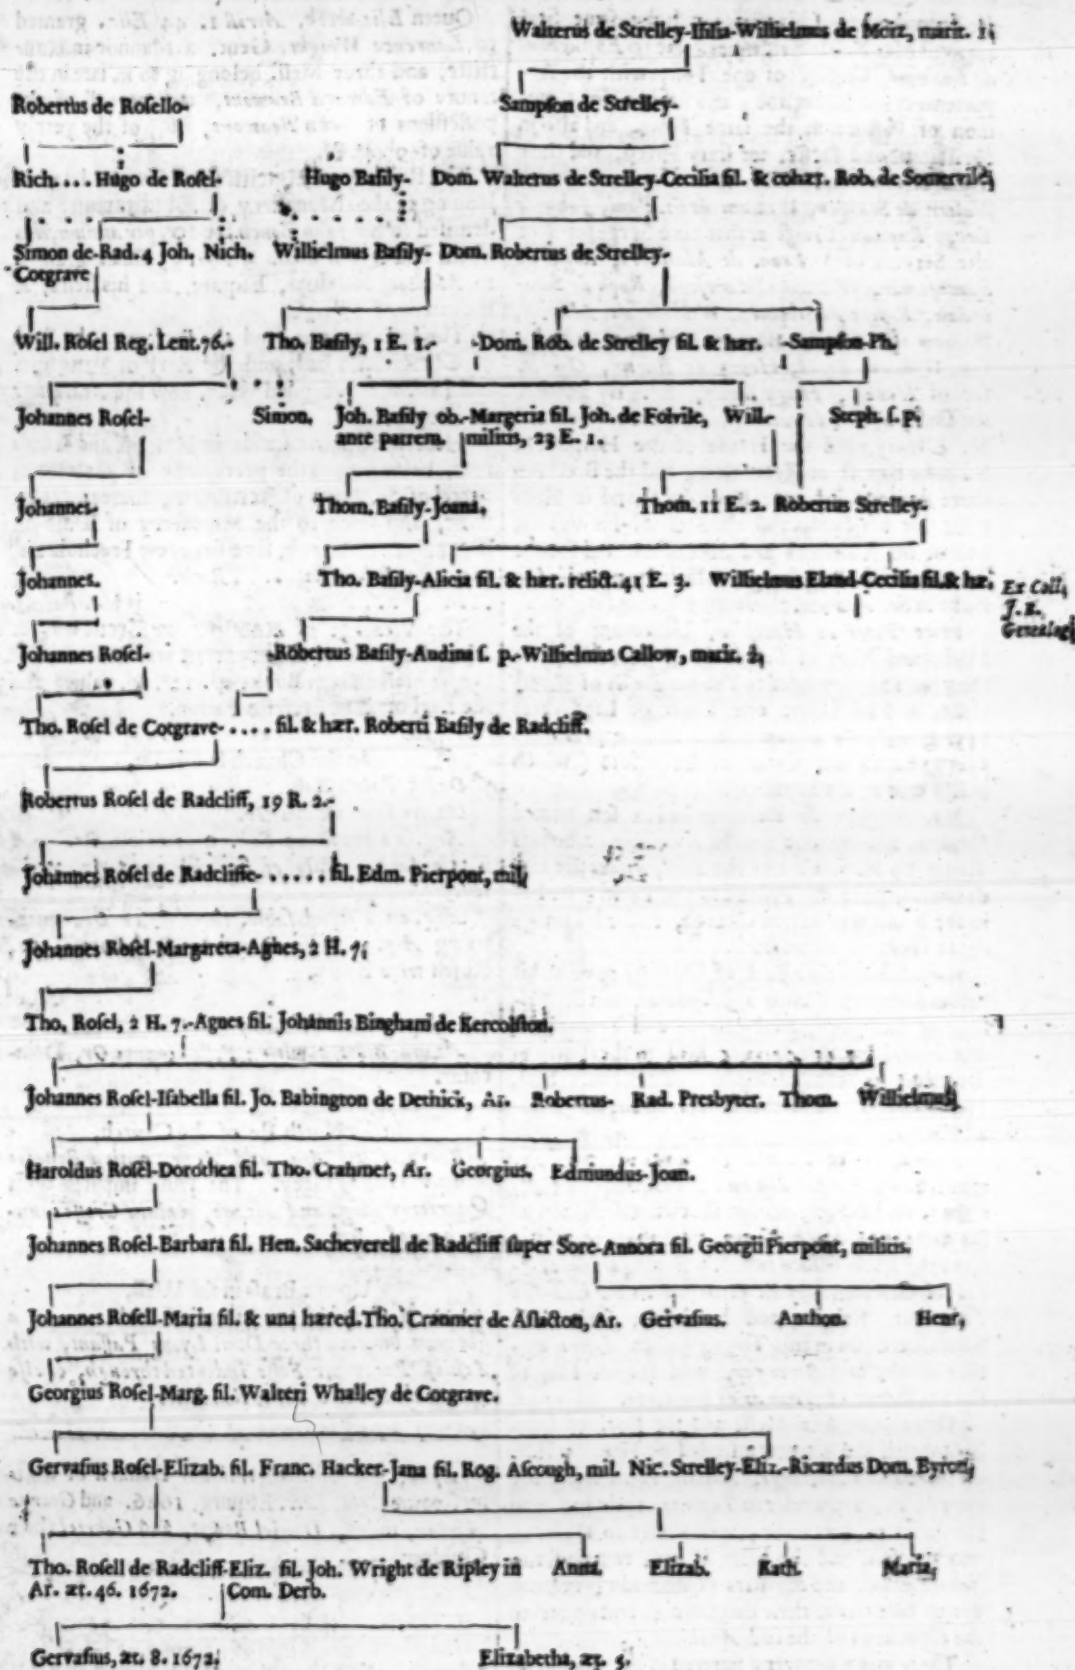 Walterus de Strelley-Isisia-Wilhielmus de Morz, marit. 1.
Robertus de Rosello- Sampson de Strelley-
Rich.... Hugo de Rosel- Hugo Basily- Dom. Walterus de Strelley-Cecilia fil. & cohær. Rob. de Somervile,
Simon de-Rad. 4 Joh. Nich. Willielmus Basily- Dom. Robertus de Strelley-
Cotgrave
Will. Rosel Reg. Lent. 76.- Tho. Basily, 1 E. 1.- -Dom. Rob. de Strelley fil. & hær. -Sampson-Ph.
Johannes Rosel- Simon. Joh. Basily ob.-Margeria fil. Joh. de Folvile, Will.- Steph. ſ. p.
ante patrem. militis, 23 E. 1.
Johannes- Thom. Basily-Joana. Thom. 11 E. 2. Robertus Strelley-
Johannes. Tho. Basily-Alicia fil. & hær. relict. 41 E. 3. Willielmus Eland-Cecilia fil. & hæ. Ex Coll.
J. R.
Johannes Rosel- Robertus Basily-Audina ſ. p.-Willielmus Callow, marit. 2,
Tho. Rosel de Cotgrave-.... fil. & hær. Roberti Basily de Radcliff.
Robertus Rosel de Radcliff, 19 R. 2.-
Johannes Rosel de Radcliffe-..... fil. Edm. Pierpont, mil.
Johannes Rosel-Margareta-Agnes, 2 H. 7.
Tho. Rosel, 2 H. 7.-Agnes fil. Johannis Binghami de Kercolston.
Johannes Rosel-Isabella fil. Jo. Babington de Dethick, Ar. Robertus- Rad. Presbyter. Thom. Willielmus
Haroldus Rosel-Dorothea fil. Tho. Crahmer, Ar. Georgius. Edmundus-Joan.
Johannes Rosel-Barbara fil. Hen. Sacheverell de Radcliff super Sore-Annora fil. Georgii Pierpont, militis.
Johannes Rosell-Maria fil. & una hæred. Tho. Cranmer de Aslacton, Ar. Gervasius. Anthon. Henr.
Georgius Rosel-Marg. fil. Walteri Whalley de Cotgrave.
Gervasius Rosel-Elizab. fil. Franc. Hacker-Jana fil. Rog. Ascough, mil. Nic. Strelley-Eliz.-Ricardus Dom. Byron,
Tho. Rosell de Radcliff-Eliz. fil. Joh. Wright de Ripley in Anna. Elizab. Kath. Maria,
Ar. æt. 46. 1672. Com. Derb.
Gervasius, æt. 8. 1672. Elizabetha, æt. 5.